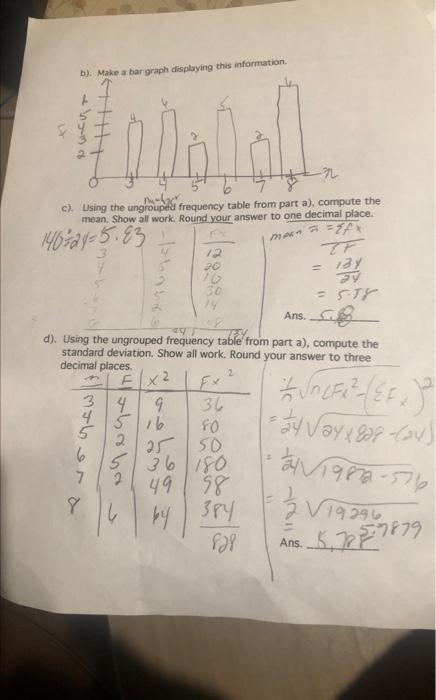 b). Make a bar graph displaying this information.
5
4
3
2
0 3 4 5 6 7 8
c). Using the ungrouped frequency table from part a), compute the
mean. Show all work. Round your answer to one decimal place.
140÷24=5.83
mean = Σfx
ΣF
3 4 12
4 5 20
5 2 10
5 30
2 14
= 134
24
= 5.58
Ans.
d). Using the ungrouped frequency table from part a), compute the
standard deviation. Show all work. Round your answer to three
decimal places.
F x2 Fx2
3 4 9 36
4 5 16 80
5 2 25 50
6 5 36 180
7 2 49 98
8 6 64 384
828
= 1/24 √24x828-(24)
= 1/24 √19872-576
= 1/2 √19296
= 5.7879
Ans. 5.788